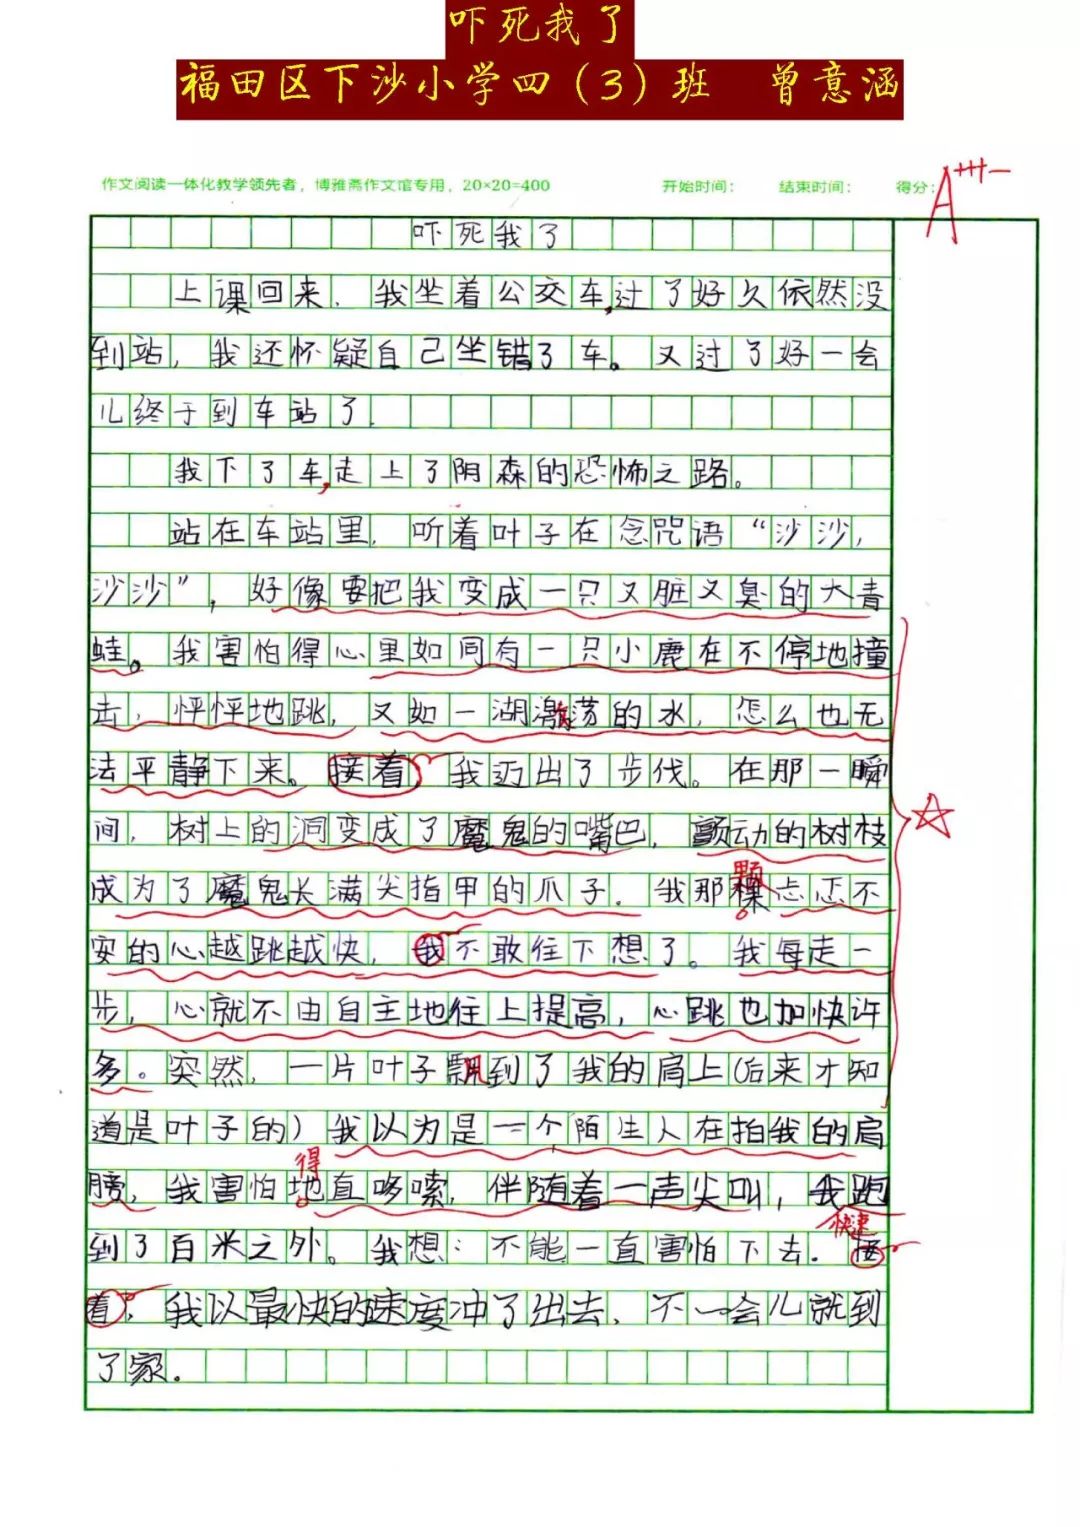 吓死我了
福田区下沙小学四（3）班 曾意涵
作文阅读一体化教学领先者，博雅斋作文馆专用，20×20=400 开始时间： 结束时间： 得分：
A+++-
吓死我了
上课回来，我坐着公交车，过了好久依然没
到站，我还怀疑自己坐错了车。又过了好一会
儿终于到车站了。
我下了车，走上了阴森的恐怖之路。
站在车站里，听着叶子在念咒语“沙沙，
沙沙”，好像要把我变成一只又脏又臭的大青
蛙。我害怕得心里如同有一只小鹿在不停地撞
击，怦怦地跳，又如一湖激荡的水，怎么也无
法平静下来。接着，我迈出了步伐。在那一瞬
间，树上的洞变成了魔鬼的嘴巴，颤动的树枝
成为了魔鬼长满尖指甲的爪子。我那棵忐忑不
颗
安的心越跳越快，我不敢往下想了。我每走一
步，心就不由自主地往上提高，心跳也加快许
多。突然，一片叶子飘到了我的肩上（后来才知
道是叶子的）我以为是一个陌生人在拍我的肩
得
膀，我害怕地直哆嗦，伴随着一声尖叫，我跑
快速
到了百米之外。我想：不能一直害怕下去。接
着，我以最快的速度冲了出去，不一会儿就到
了家。